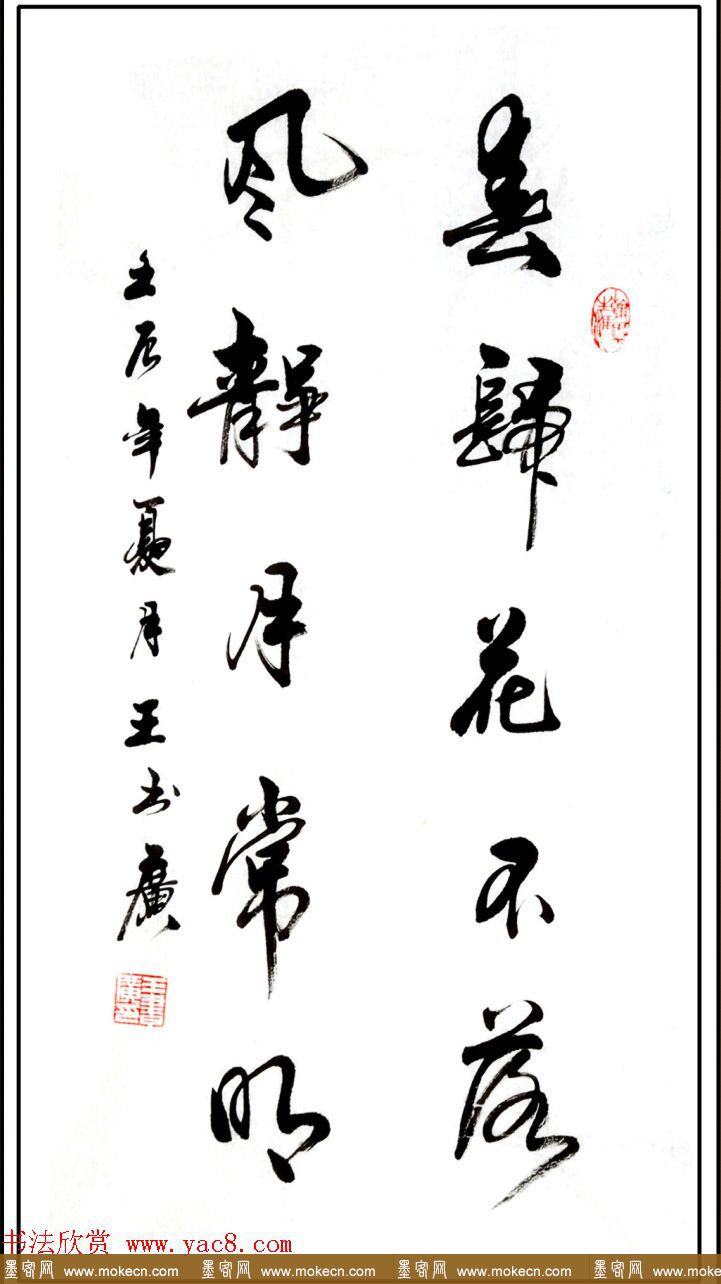 春歸花不落
风静月常明
壬辰年夏月王书廣
王書廣印
书法欣赏 www.yac8.com
墨客网 www.mokecn.com 墨客网 www.mokecn.com 墨客网 www.mokecn.com 墨客网 www.mokecn.com